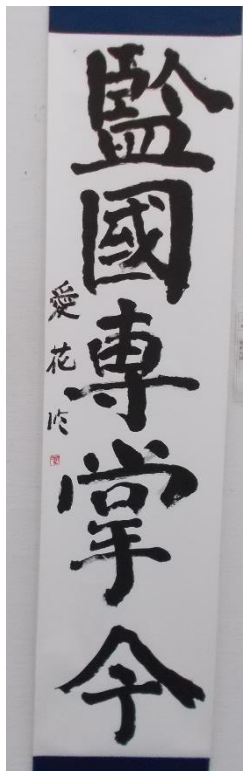 監國専掌令
愛花臨